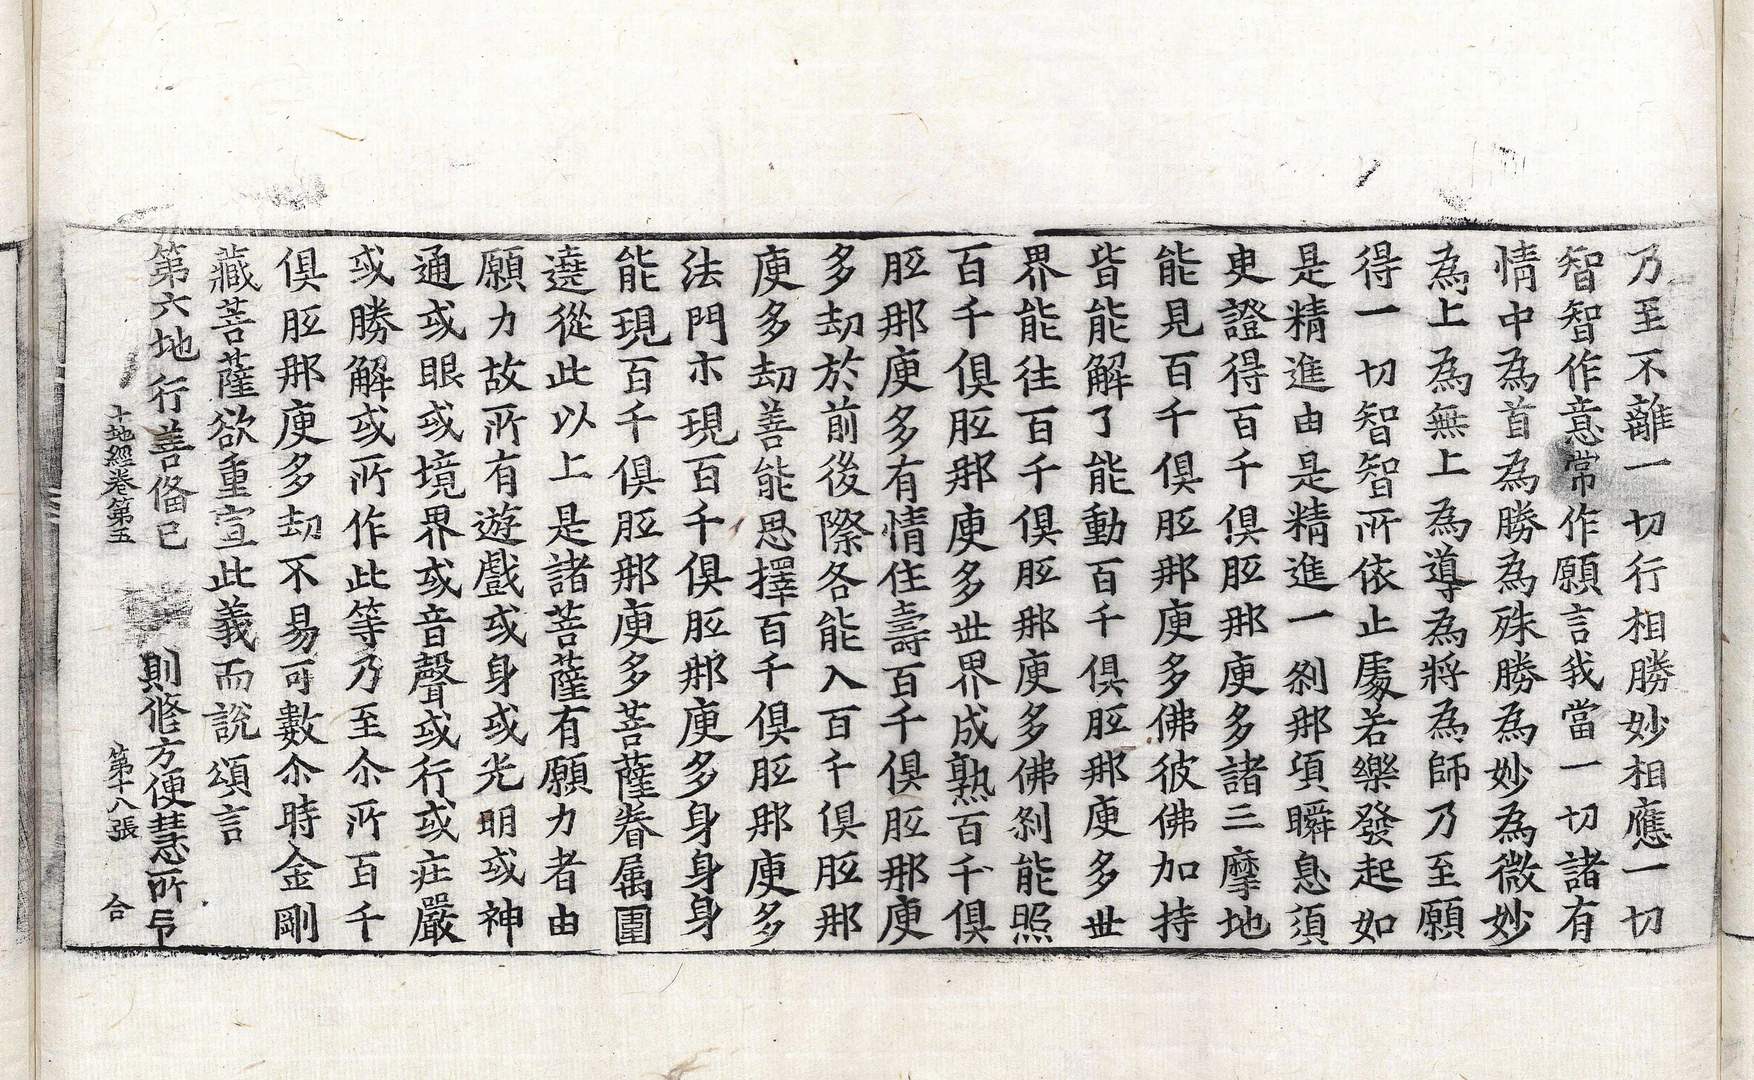 乃至不離一切行相勝妙相應一切
智智作意常作願言我當一切諸有
情中為首為勝為殊勝為妙為微妙
為上為無上為導為將為師乃至願
得一切智智所依止處若樂發起如
是精進由是精進一剎那頃瞬息須
臾證得百千俱胝那庾多諸三摩地
能見百千俱胝那庾多佛彼佛加持
皆能解了能動百千俱胝那庾多世
界能往百千俱胝那庾多佛剎能照
百千俱胝那庾多世界成熟百千俱
胝那庾多有情住壽百千俱胝那庾
多劫於前後際各能入百千俱胝那
庾多劫善能思擇百千俱胝那庾多
法門示現百千俱胝那庾多身身身
能現百千俱胝那庾多菩薩眷属圍
遶從此以上是諸菩薩有願力者由
願力故所有遊戲或身或光明或神
通或眼或境界或音聲或行或庄嚴
或勝解或所作此等乃至尒所百千
俱胝那庾多劫不易可數尒時金剛
藏菩薩欲重宣此義而說頌言
第六地行善俻已 則俻方便慧所引
十地經卷第五 第十八張 合